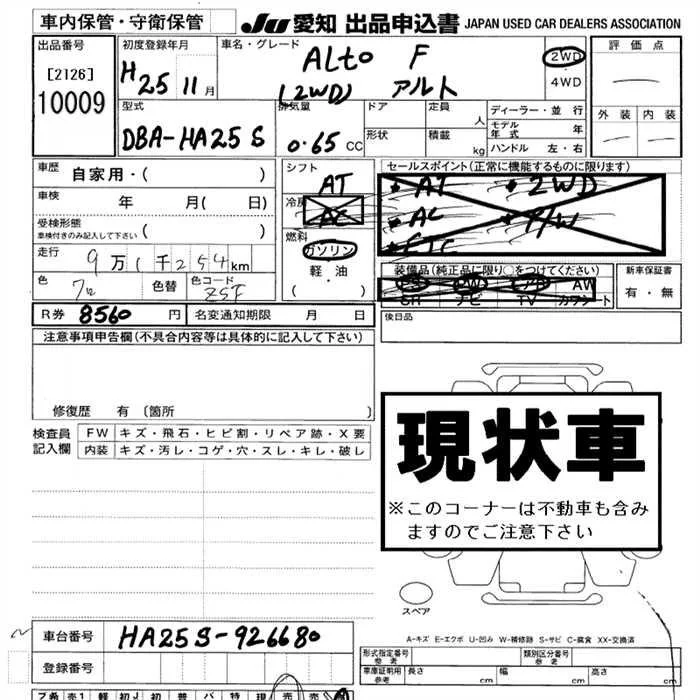 車内保管・守衛保管 JU 愛知 出品申込書 JAPAN USED CAR DEALERS ASSOCIATION
出品番号 初度登録年月 車名・グレード 評価点
[2126] H25 11月 ALto F 2WD
10009 (2WD) アルト 4WD
外装 内装
型式 排気量 ドア 定員 人 ディーラー・並行
DBA-HA25S 0.65 CC 形状 積載 kg モデル年式 年
ハンドル 左・右
車歴 自家用・( ) シフト セールスポイント(正常に機能するものに限ります)
AT AT 2WD
車検 年 月( 日) 冷房 AC AC P/W
受検形態 車検付きのみ記入して下さい ( ) 燃料 ETC
走行 9万1千254km ガソリン 装備品(純正品に限り○をつけてください) 新車保証書
色 色替 色コード Z5F 軽・油 PS PW エアB AW 有・無
( ) SR ナビ TV カワシート
R券 8560円 名変通知期限 月 日 後日品
注意事項申告欄(不具合内容等は具体的に記入して下さい)
修復歴 有 〔箇所 〕
検査員 FW キズ・飛石・ヒビ割・リペア跡・X要
記入欄 内装 キズ・汚レ・コゲ・穴・スレ・キレ・破レ
現状車
※このコーナーは不動車も含み
ますのでご注意下さい
スペア
A-キズ E-エクボ U-凹み W-補修跡 S-サビ C-腐食 XX-交換済
車台番号 HA25S-926680
型式指定番号 参考 類別区分番号 参考
登録番号 車庫証明用 参考 長さ cm 幅 cm 高さ cm